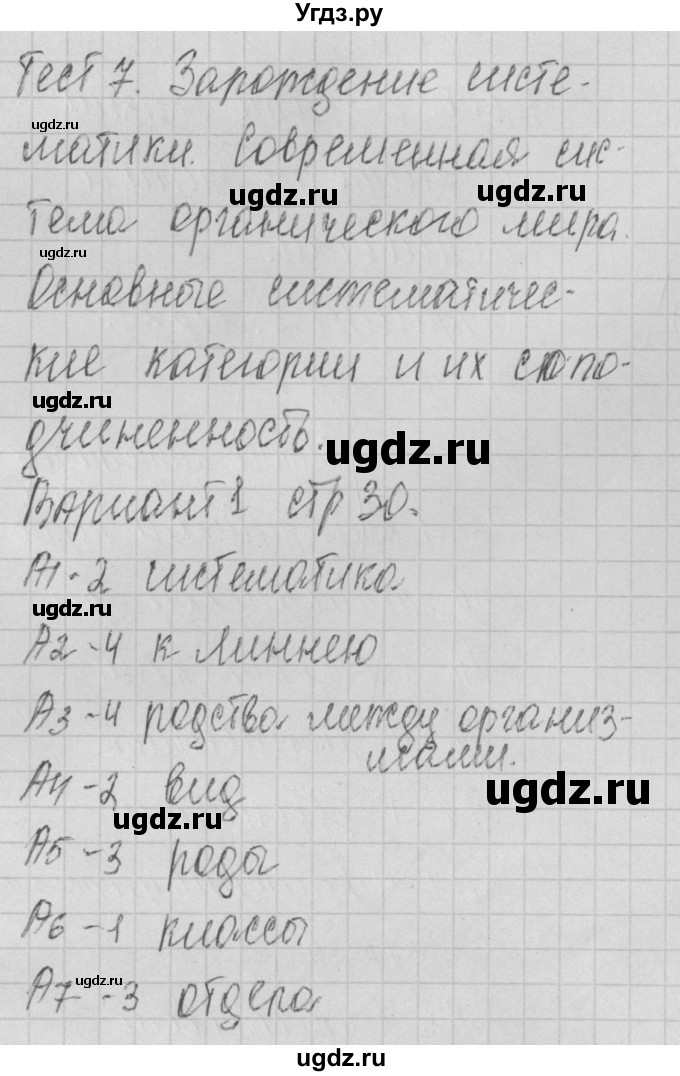 Угдз.ру
Тест 7. Зарождение систе-
ugdz.ru
матики. Современная сис-
ugdz.ru ugdz.ru
тема органического мира.
ugdz.ru
Основные систематичес-
кие категории и их сопо-
ugdz.ru
дчиненность.
ugdz.ru
Вариант 1 стр 30.
А1-2 систематика
ugdz.ru
А2-4 к Линнею
А3-4 родства между организ-
мами.
А4-2 вид
ugdz.ru
ugdz.ru
А5-3 роды
А6-1 классы
ugdz.ru
А7-3 отдела
ugdz.ru